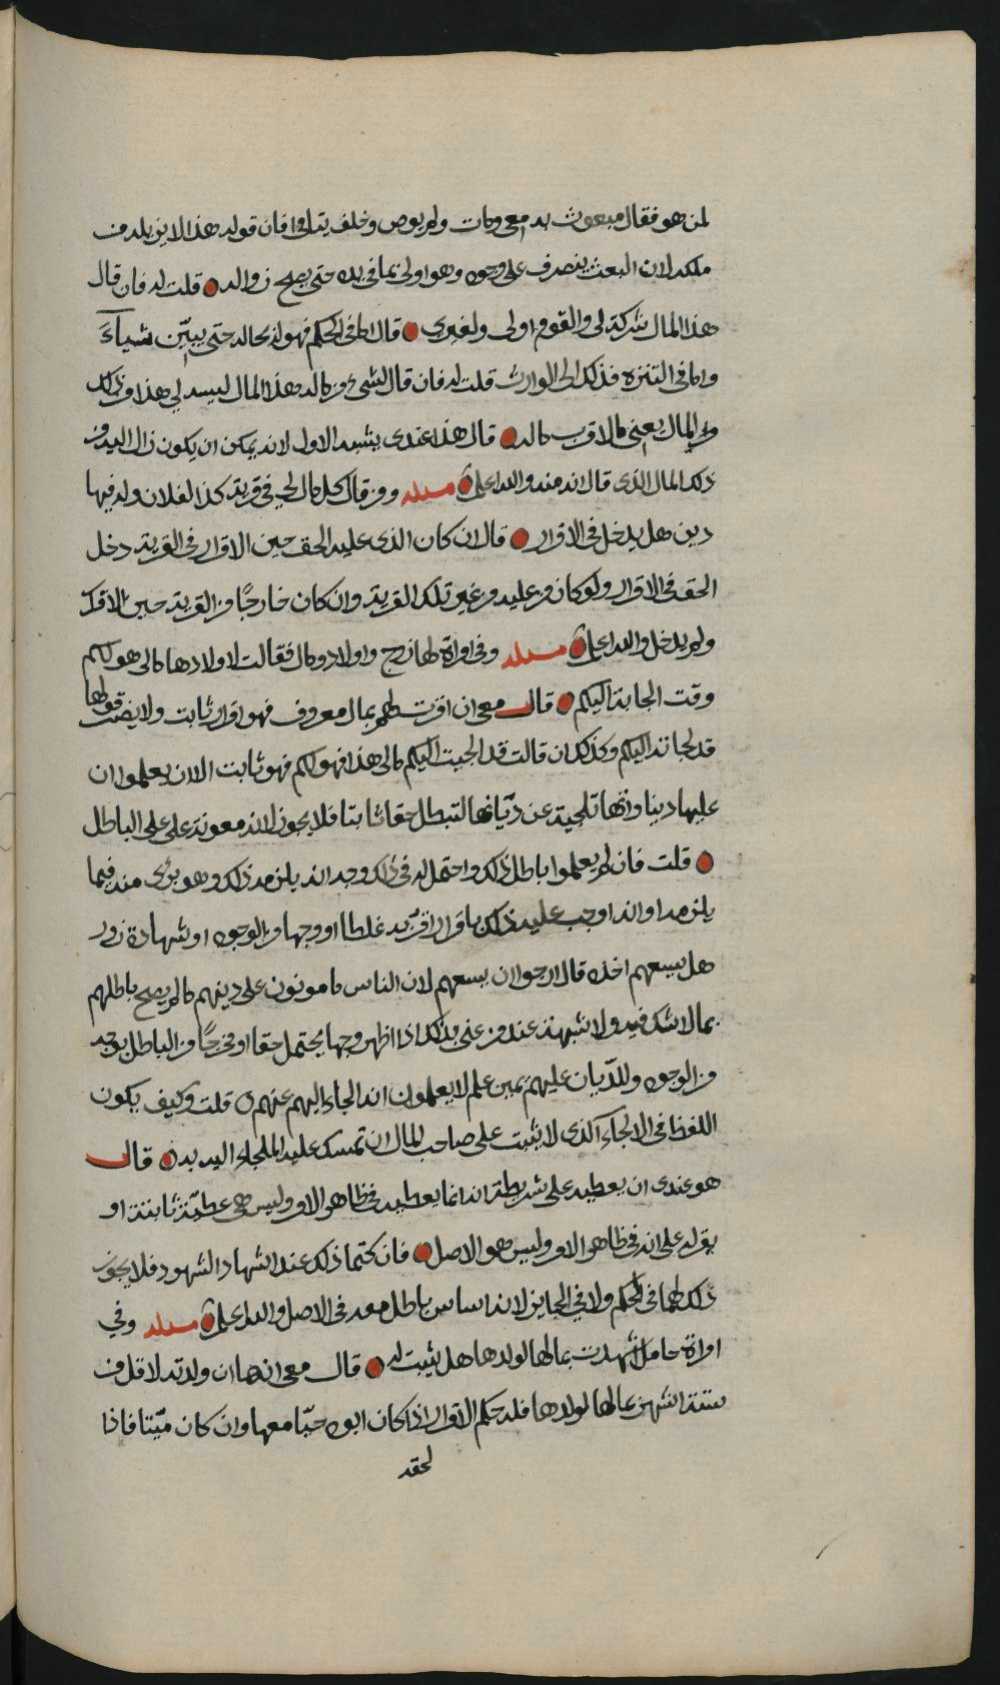 لمن هو فقال مبعوث به معي ومات ولم يوص وخلف يتامى فان قوله هذا لا يزيله من
ملكه لان البعث ينصرف على وجوه وهو اولى بما في يده حتى يصح زواله قلت له فان قال
هذا المال شركة لي والقوم اولى ولغيري قال اما في الحكم فهو له بحاله حتى يبيّن شيآءً
واما في التنزه فذلك الى الوارث قلت له فان قال لشيء من ماله هذا المال ليس لي هذا من ذلك
المال يعني مالا قرب ماله قال هذا عندي يشبه الاول لانه يمكن ان يكون زال اليه من
ذلك المال الذي قال انه منه والله اعلم مسئلة ومن قال كل مال لي في قرية كذا لفلان وله فيها
دين هل يدخل في الاقرار قال ان كان الذي عليه الحق حين الاقرار في القرية دخل
الحق في الاقرار ولو كان من عليه من غير تلك القرية وان كان خارجًا من القرية حين الاقرار
ولم يدخل والله اعلم مسئلة وفي امراة لها زوج واولاد ومال فقالت لاولادها مالي هو لكم
وقت الجابة اليكم قال معي ان اقرت لهم بمال معروف فهو اقرار ثابت ولا يضر قولها
قد لجاته اليكم وكذلك ان قالت قد الجيت اليكم مالي هذا فهو لكم فهو ثابت الا ان يعلموا ان
عليها دينا وانها تلجية عن ديّانها لتبطل حقا ثابتا فلا يجوز لانه معونة على الباطل
قلت فان لم يعلموا باطل ذلك واحتمل له في ذلك وجه انه يلزمه ذلك وهو بريء منه فيما
يلزمه او انه اوجب عليه ذلك باقرار اقرّ به غلطا او وجها من الوجوه او شهادة زور
هل يسعهم اخذه قال ارجوا ان يسعهم لان الناس مامونون على دينهم ما لم يصح باطلهم
بما لا شك فيه ولا شبهة عند من عني بذلك اذا اظهر وجها يحتمل حقا او مخرجًا من الباطل بوجه
من الوجوه وللديان عليهم يمين علم لا يعلمون انه الجاء اليهم عنهم قلت وكيف يكون
اللفظ في الالجاء الذي لا يثبت على صاحب المال ان تمسك عليه الملجاء اليه به قال
هو عندي ان يعطيه على شريطة انه انما يعطيه في ظاهر الامر وليس هي عطيّة ثابتة او
يقر له على انه في ظاهر الامر وليس هو الاصل فان كتما ذلك عند اشهاد الشهود فلا يجوز
ذلك لهما في الحكم ولا في الجايز لانه اساس باطل معه في الاصل والله اعلم مسئلة وفي
امراة حامل اشهدت بمالها لولدها هل يثبت له قال معي انها ان ولدته لاقل من
ستة اشهر بمالها لولدها فله حكم الاقرار اذا كان ابوه حيّا معها وان كان ميّتا فاذا
لحقه